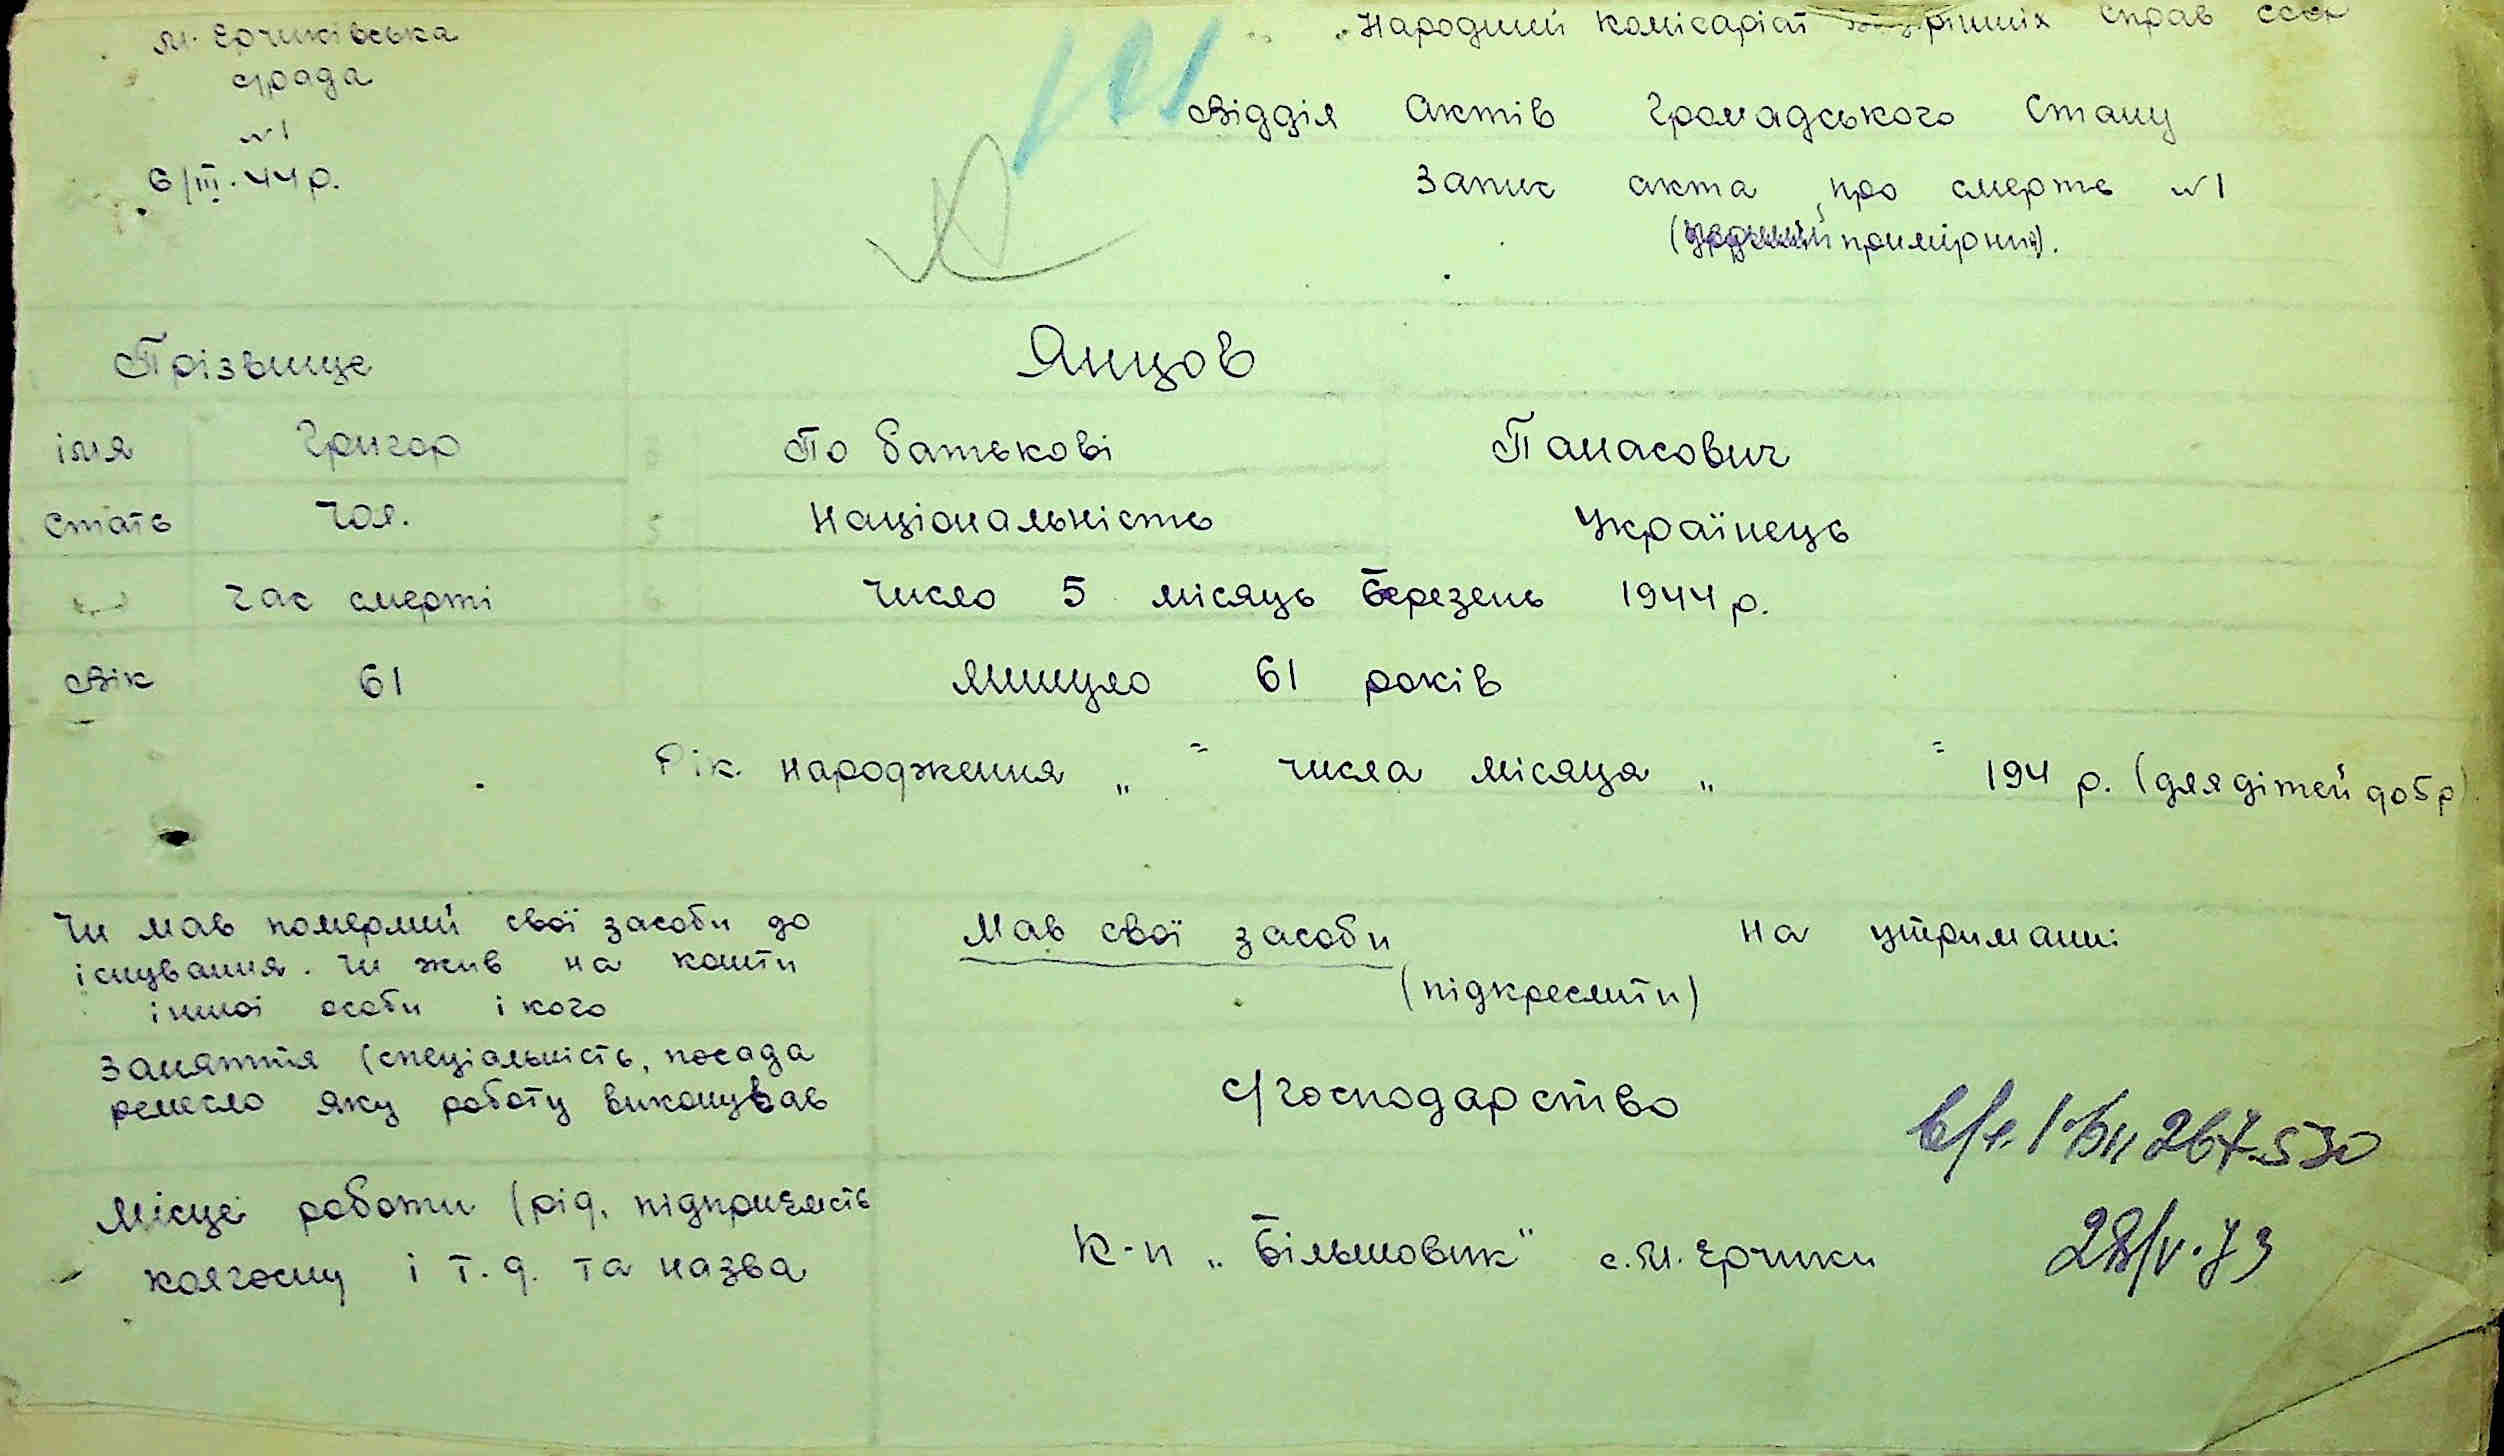 М. Єрчиківська
с/рада
№1
6/III.44р.
Народний комісаріат внутрішніх справ СССР
Відділ Актів Громадського Стану
Запис акта про смерть №1
Прізвище Янцов
імя Григор По батькові Панасович
стать чол. Національність Українець
час смерті число 5 місяць Березень 1944 р.
Вік 61 Минуло 61 років
Рік народження „ " числа місяця „ " 194 р. (для дітей до 5 р)
Чи мав померлий свої засоби до
існування. чи жив на кошти
іншої особи і кого
Мав свої засоби на утриманні
(підкреслити)
Заняття (спеціальність, посада
ремесло яку роботу виконував
с/господарство
Місце роботи (рід, підприємств
колгоспу і т.д. та назва
К-п „Більшовик" с. М. Єрчики
28/V.73